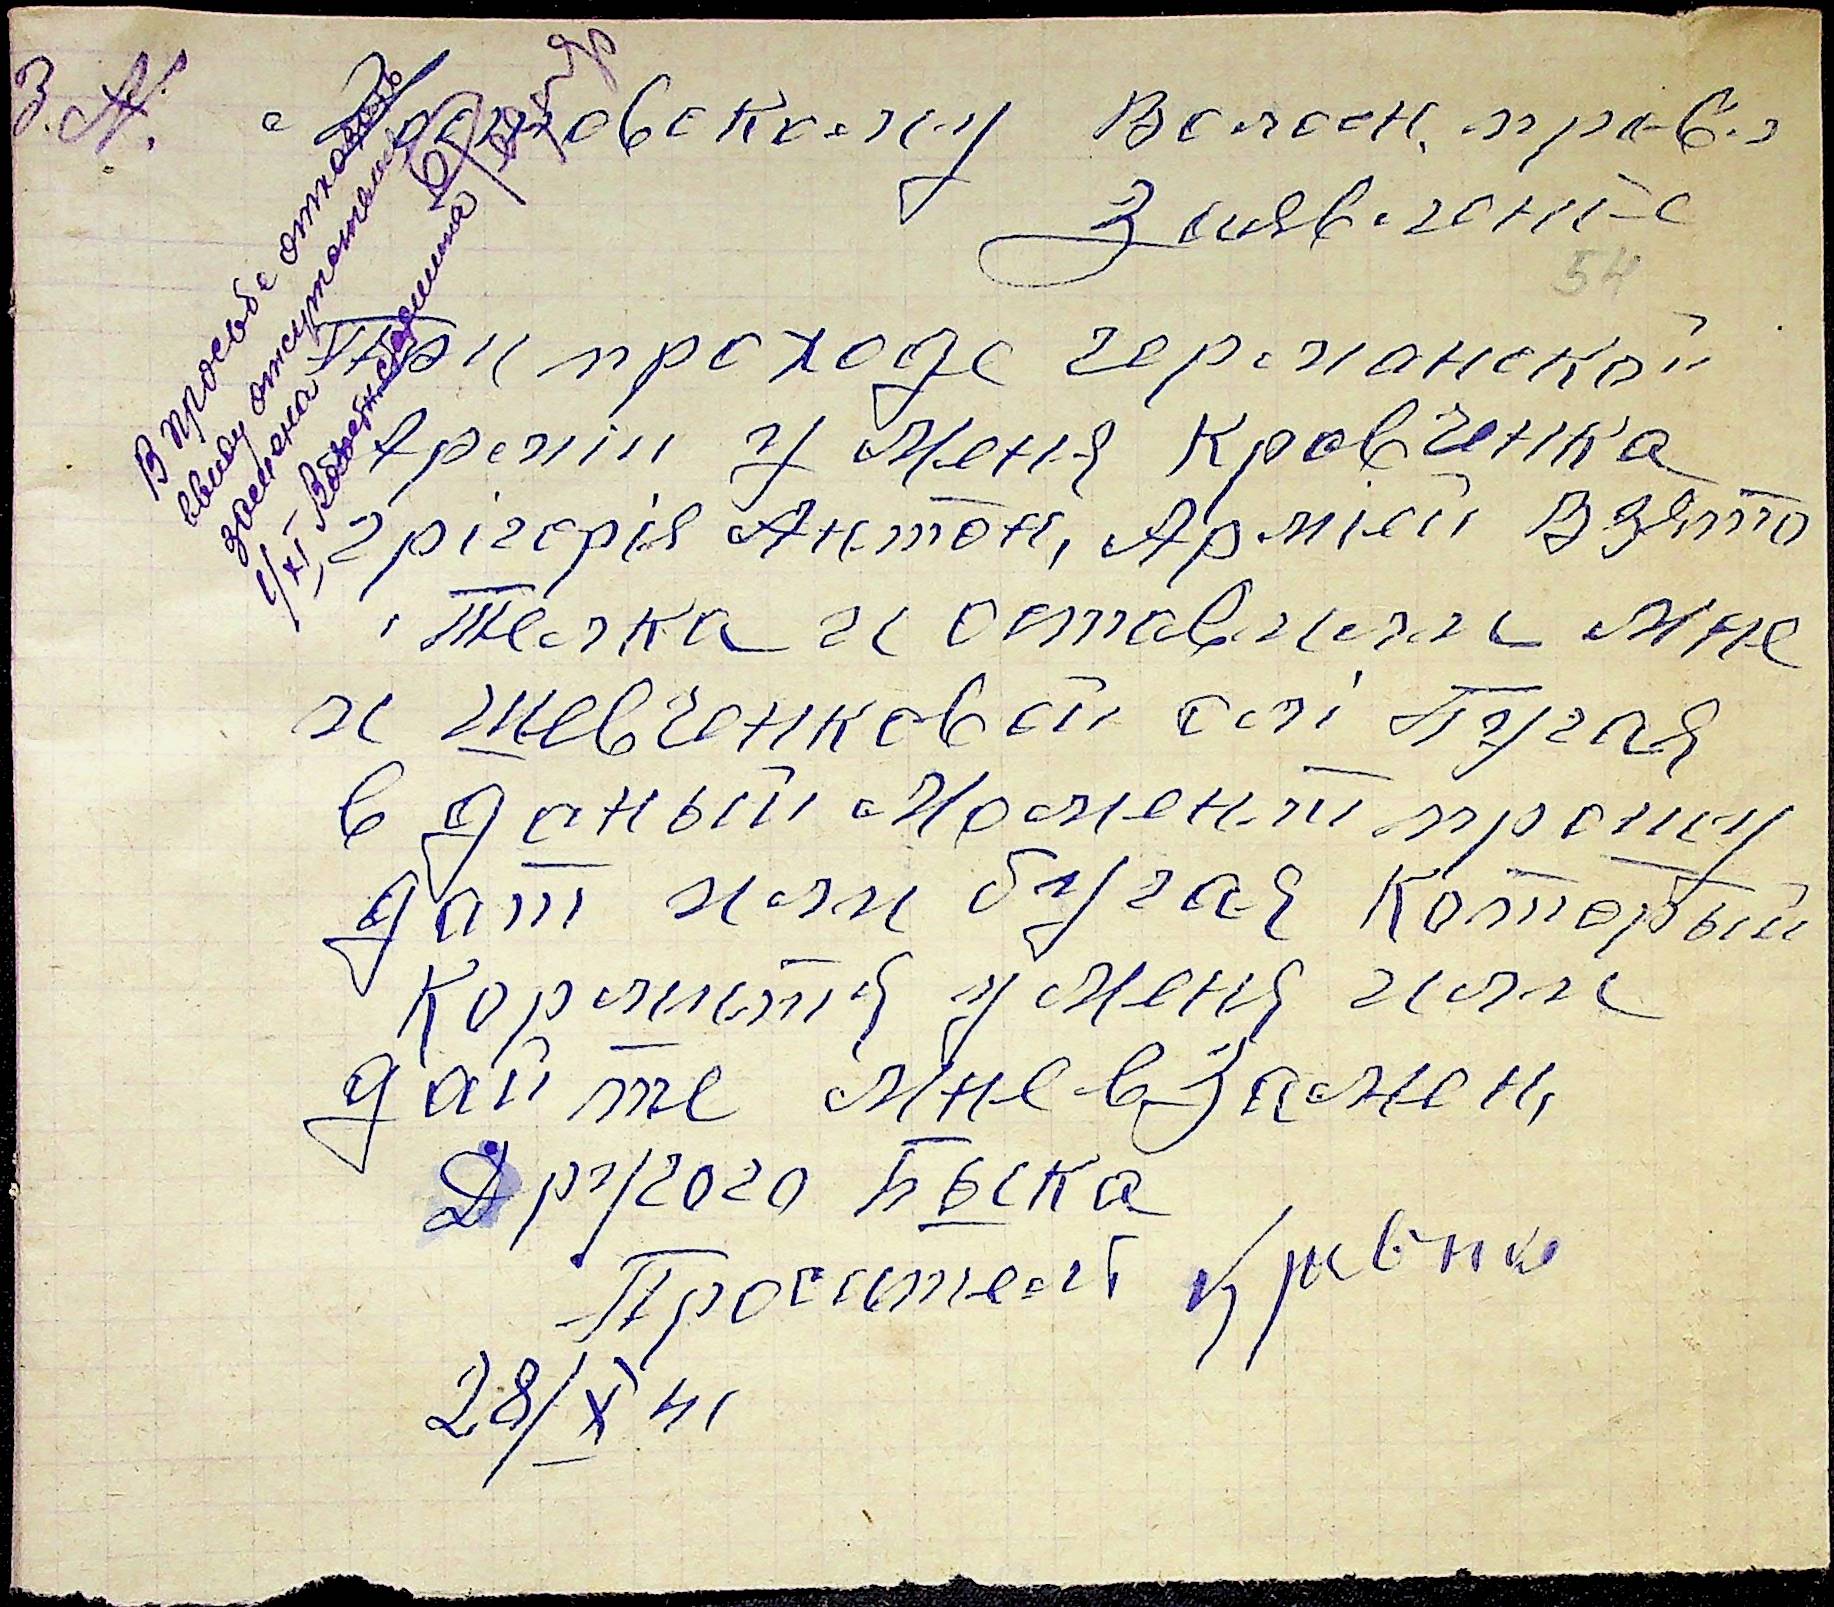 З. А.
Волосн. правл
Заявленіе
54
При проходе германской
Армііи у меня Кровченка
Грігорія Антон, Арміей Взято
Телка и оставили мне
и шевченковой олі Пугая
в даный момент прошу
дат или бугая который
кормится у меня или
дайте мне в замен,
Другого Быка
Проситель
28/X 41
В просьбе отказать
ввиду отсутствия
замена
1/XI Волостной старшина